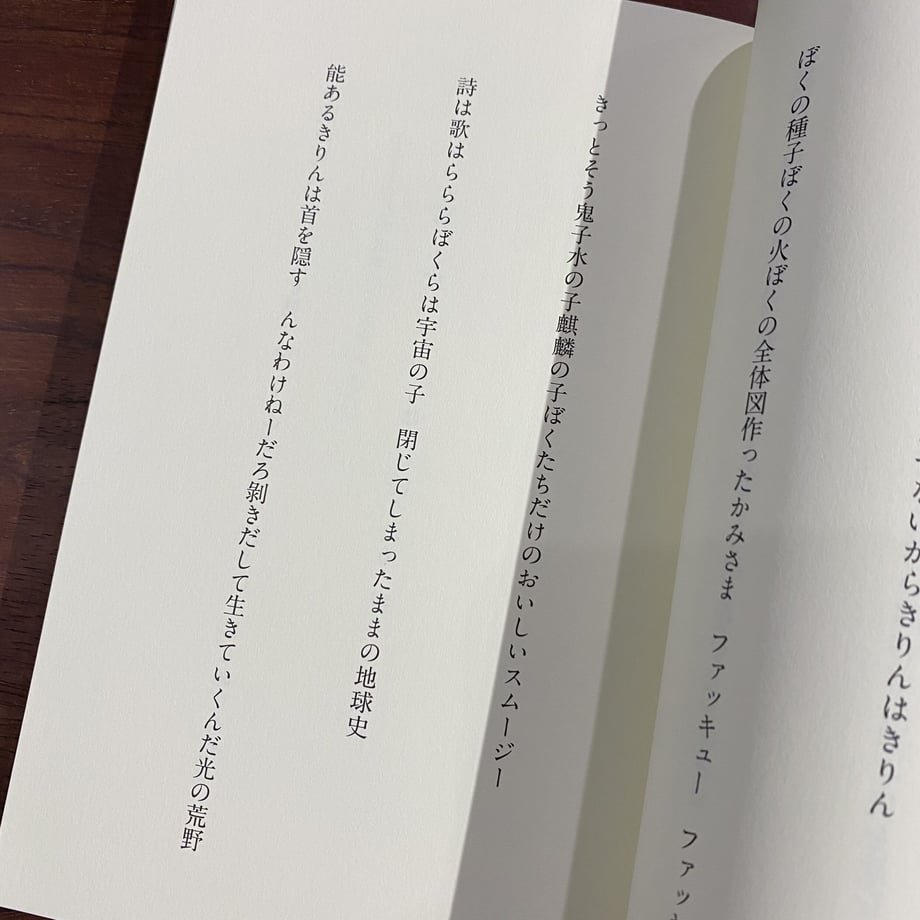 ないからきりんはきりん
ぼくの種子ぼくの火ぼくの全体図作ったかみさま　ファッキュー　ファッ
きっとそう鬼子水の子麒麟の子ぼくたちだけのおいしいスムージー
詩は歌はらららぼくらは宇宙の子　閉じてしまったままの地球史
能あるきりんは首を隠す　んなわけねーだろ剝きだして生きていくんだ光の荒野